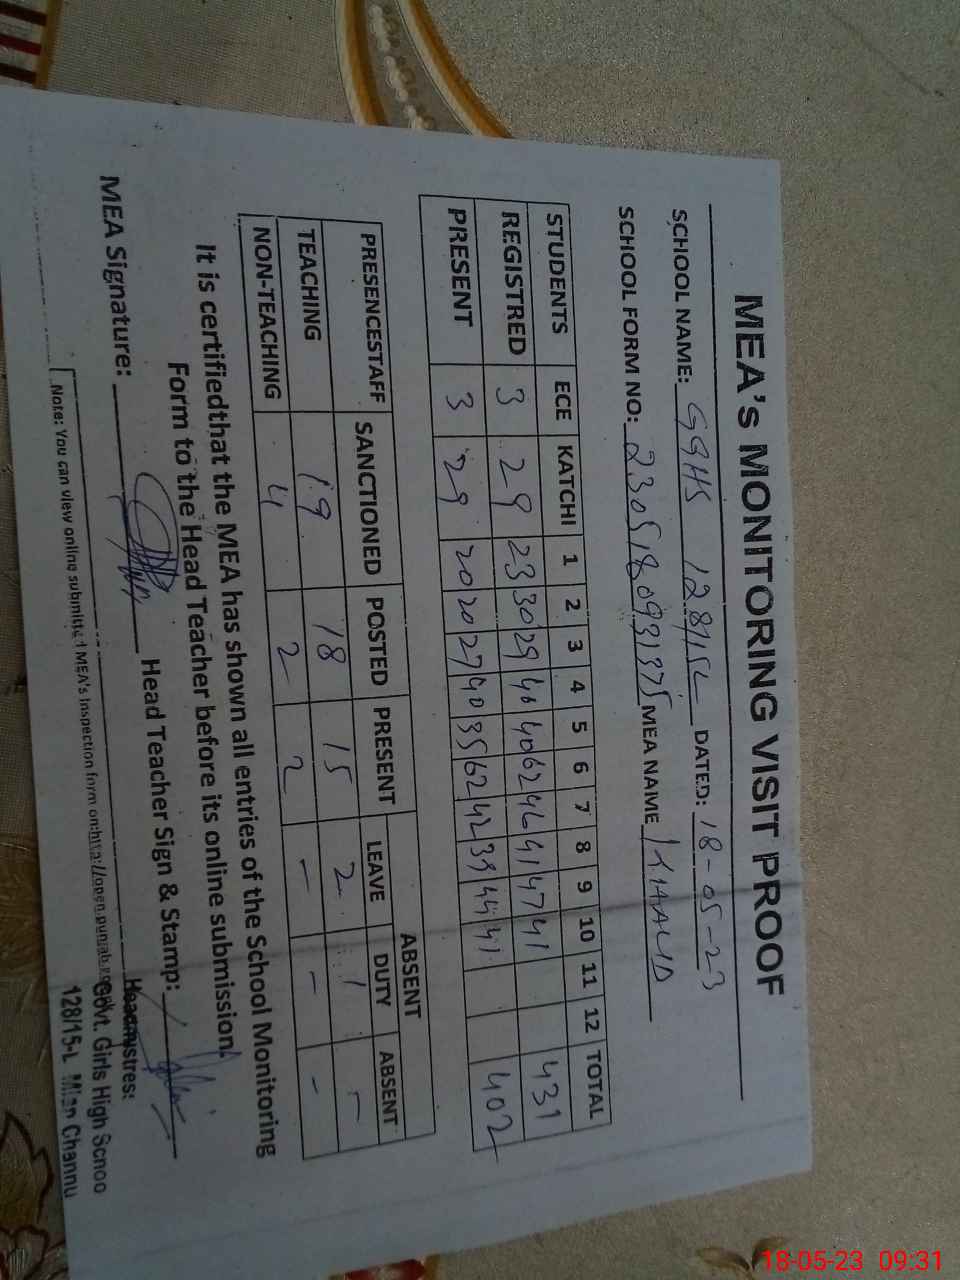 MEA's MONITORING VISIT PROOF
SCHOOL NAME: GGHS 128/15L DATED: 18-05-23
SCHOOL FORM NO: 2305180931375 MEA NAME KHALID
STUDENTS ECE KATCHI 1 2 3 4 5 6 7 8 9 10 11 12 TOTAL
REGISTRED 3 29 23 30 29 40 40 62 46 41 47 41 431
PRESENT 3 29 20 20 27 40 35 62 42 39 44 41 402
PRESENCESTAFF SANCTIONED POSTED PRESENT ABSENT
LEAVE DUTY ABSENT
TEACHING 19 18 15 2 1 -
NON-TEACHING 4 2 2 - - -
It is certifiedthat the MEA has shown all entries of the School Monitoring
Form to the Head Teacher before its online submission.
MEA Signature: Head Teacher Sign & Stamp:
Headmistres:
Govt. Girls High Schoo
128/15-L Mian Channu
Note: You can view online submitted MEA's Inspection form on:http://open.punjab.gov
18-05-23 09:31